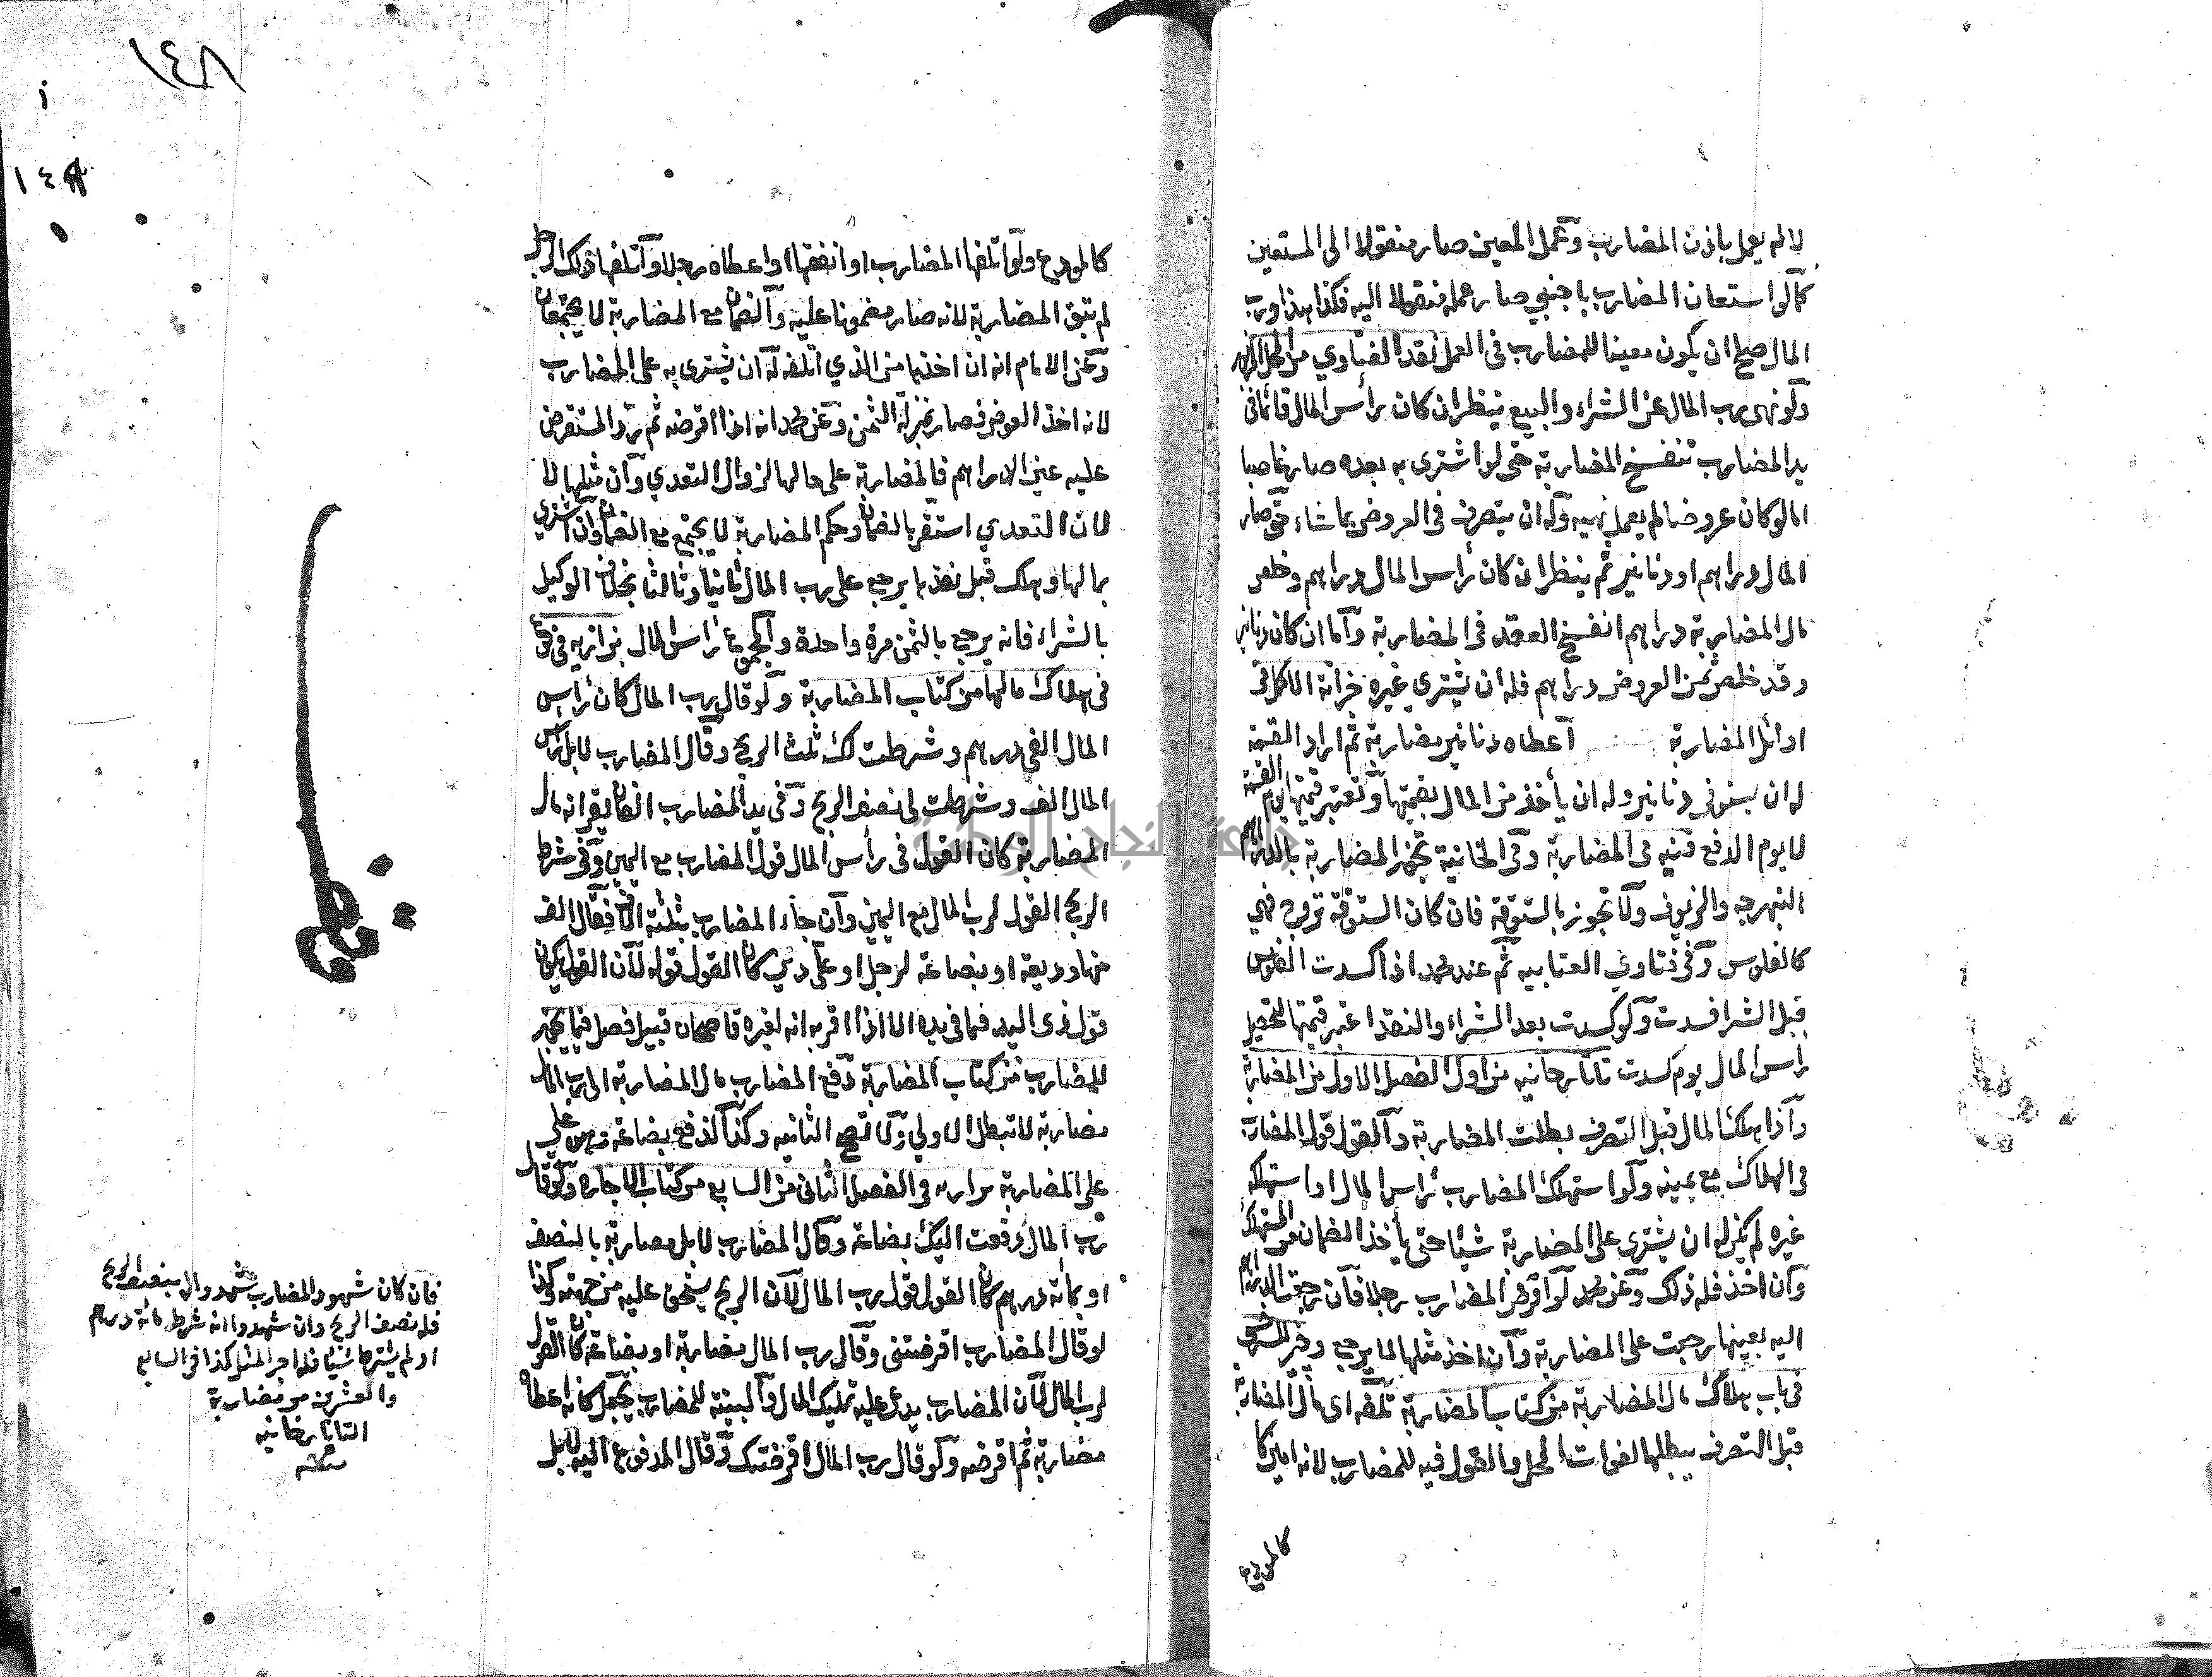 لا لم يعمل باذن المضارب وعمل المعين صار منقولا الى المستعين
كما لو استعان المضارب باجنبي صار عمله منقولا اليه فكذا هذا ورب
المال صلح ان يكون معينا للمضارب في العمل نقد الفتاوي من المحل المزبور
ولو نهى رب المال عن الشراء والبيع ينظر ان كان رأس المال قائما في
يد المضارب تنفسخ المضاربة حتى لو اشترى به بعده صار غاصبا
اما لو كان عروضا لم يعمل نهيه وله ان يتصرف في العروض بما شاء حتى صار
المال دراهم او دنانير ثم ينظر ان كان رأس المال دراهم وخلص
مال المضاربة دراهم انفسخ العقد في المضاربة وأما ان كان دنانير
وقد خلص ثمن العروض دراهم فله ان يشتري غيره خزانة الاكمل في
اوائل المضاربة اعطاه دنانير مضاربة ثم اراد القسمة
له ان يستوفي دنانير وله ان يأخذ من المال بقيمتها وتعتبر قيمتها يوم القسمة
لا يوم الدفع قنيه في المضاربة وفي الخانية تجوز المضاربة بالدراهم
النبهرجه والزيوف ولا تجوز بالستوقة فان كان الستوقة تروج فهي
كالفلوس وفي فتاوي العتابيه ثم عند محمد اذا كسدت الفلوس
قبل الشرا فسدت ولو كسدت بعد الشراء والنقد اعتبر قيمتها لتحصيل
رأس المال يوم كسدت تاتارخانيه من اول الفصل الاول من المضاربة
واذا هلك المال قبل التصرف بطلت المضاربة والقول قول المضارب
في الهلاك مع يمينه ولو استهلك المضارب رأس المال او استهلكه
غيره لم يكن له ان يشتري على المضاربة شيئا حتى يأخذ الضمان من المستهلك
وان اخذ فله ذلك وعن محمد لو اقرض المضارب رجلا فان رجعت الدراهم
اليه بعينها رجعت على المضاربة وان اخذ مثلها لا يرجع وجيز السرخسي
في باب هلاك مال المضاربة من كتاب المضاربة تلفه اي مال المضاربة
قبل التصرف يبطلها لفوات المحل والقول فيه للمضارب لانه امين كا
كالمودع
١٤٨
١٤٨
كالمودع ولو اتلفها المضارب او انفقها او اعطاه رجلا واتلفها ذلك الرجل
لم تبق المضاربة لانه صار مضمونا عليه والضمان مع المضاربة لا يجتمعان
وعن الامام انه ان اخذها من الذي اتلفه له ان يشترى به على المضارب
لانه اخذ العوض فصار بمنزلة الثمن وعن محمد انه اذا اقرضه ثم رد المستقرض
عليه عين الدراهم فالمضاربة على حالها لزوال التعدي وان مثلها لا
لان التعدي استقر بالضمان وحكم المضاربة لا يجتمع مع الضمان وان اشترى
بمالها وهلك قبل نقدها يرجع على رب المال ثانيا وثالثا بخلاف الوكيل
بالشراء فانه يرجع بالثمن مرة واحدة والمجموع رأس المال بزازيه في نوع
في هلاك مالها من كتاب المضاربة ولو قال رب المال كان رأس
المال الفي درهم وشرطت لك ثلث الربح وقال المضارب لا بل رأس
المال الف وشرطت لي نصف الربح وفي يد المضارب الفان يقر انه مال
المضاربة كان القول في رأس المال قول المضارب مع اليمين وفي شرط
الربح القول لرب المال مع اليمين وان جاء المضارب بثلثة الاف فقال الف
منها وديعة او بضاعة لرجل او علي دين كان القول قوله لان القول يكون
قول ذي اليد فيما في يده الا اذا اقر به انه لغيره قاضيخان قبيل فصل فيما يجوز
للمضارب من كتاب المضاربة دفع المضارب مال المضاربة الى رب المال
مضاربة لا تبطل الاولي ولا تصح الثانيه وكذا الدفع بضاعة وهي علي
على المضاربة بزازيه في الفصل الثاني من السابع من كتاب الاجاره ولو قال
رب المال دفعت اليك بضاعة وقال المضارب لا بل مضاربة بالنصف
او بمائة درهم كان القول قول رب المال لان الربح يستحق عليه من جهته وكذا
لو قال المضارب اقرضتني وقال رب المال مضاربة او بضاعة كان القول
لرب المال لان المضارب يدعي عليه تمليك المال والبينة للمضارب يجعل كانه اعطاه
مضاربة ثم اقرضه ولو قال رب المال اقرضتك وقال المدفوع اليه لا بل
فان كان شهود المضارب شهدوا له بنصف الربح
فله نصف الربح وان شهدوا انه شرط مائة درهم
او لم يشترط شيئا فله اجر المثل كذا في السابع
والعشرين من مضاربة
التاتارخانيه
جامعة النجاح الوطنية